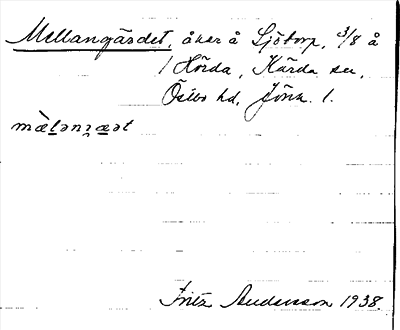 Mellangärdet, åker å Sjötorp, 3/8 å
1 Hörda, Kärda sn,
Östbo hd, Jönk. l.
mὲlənɟæət
Fritz Andersson 1938.